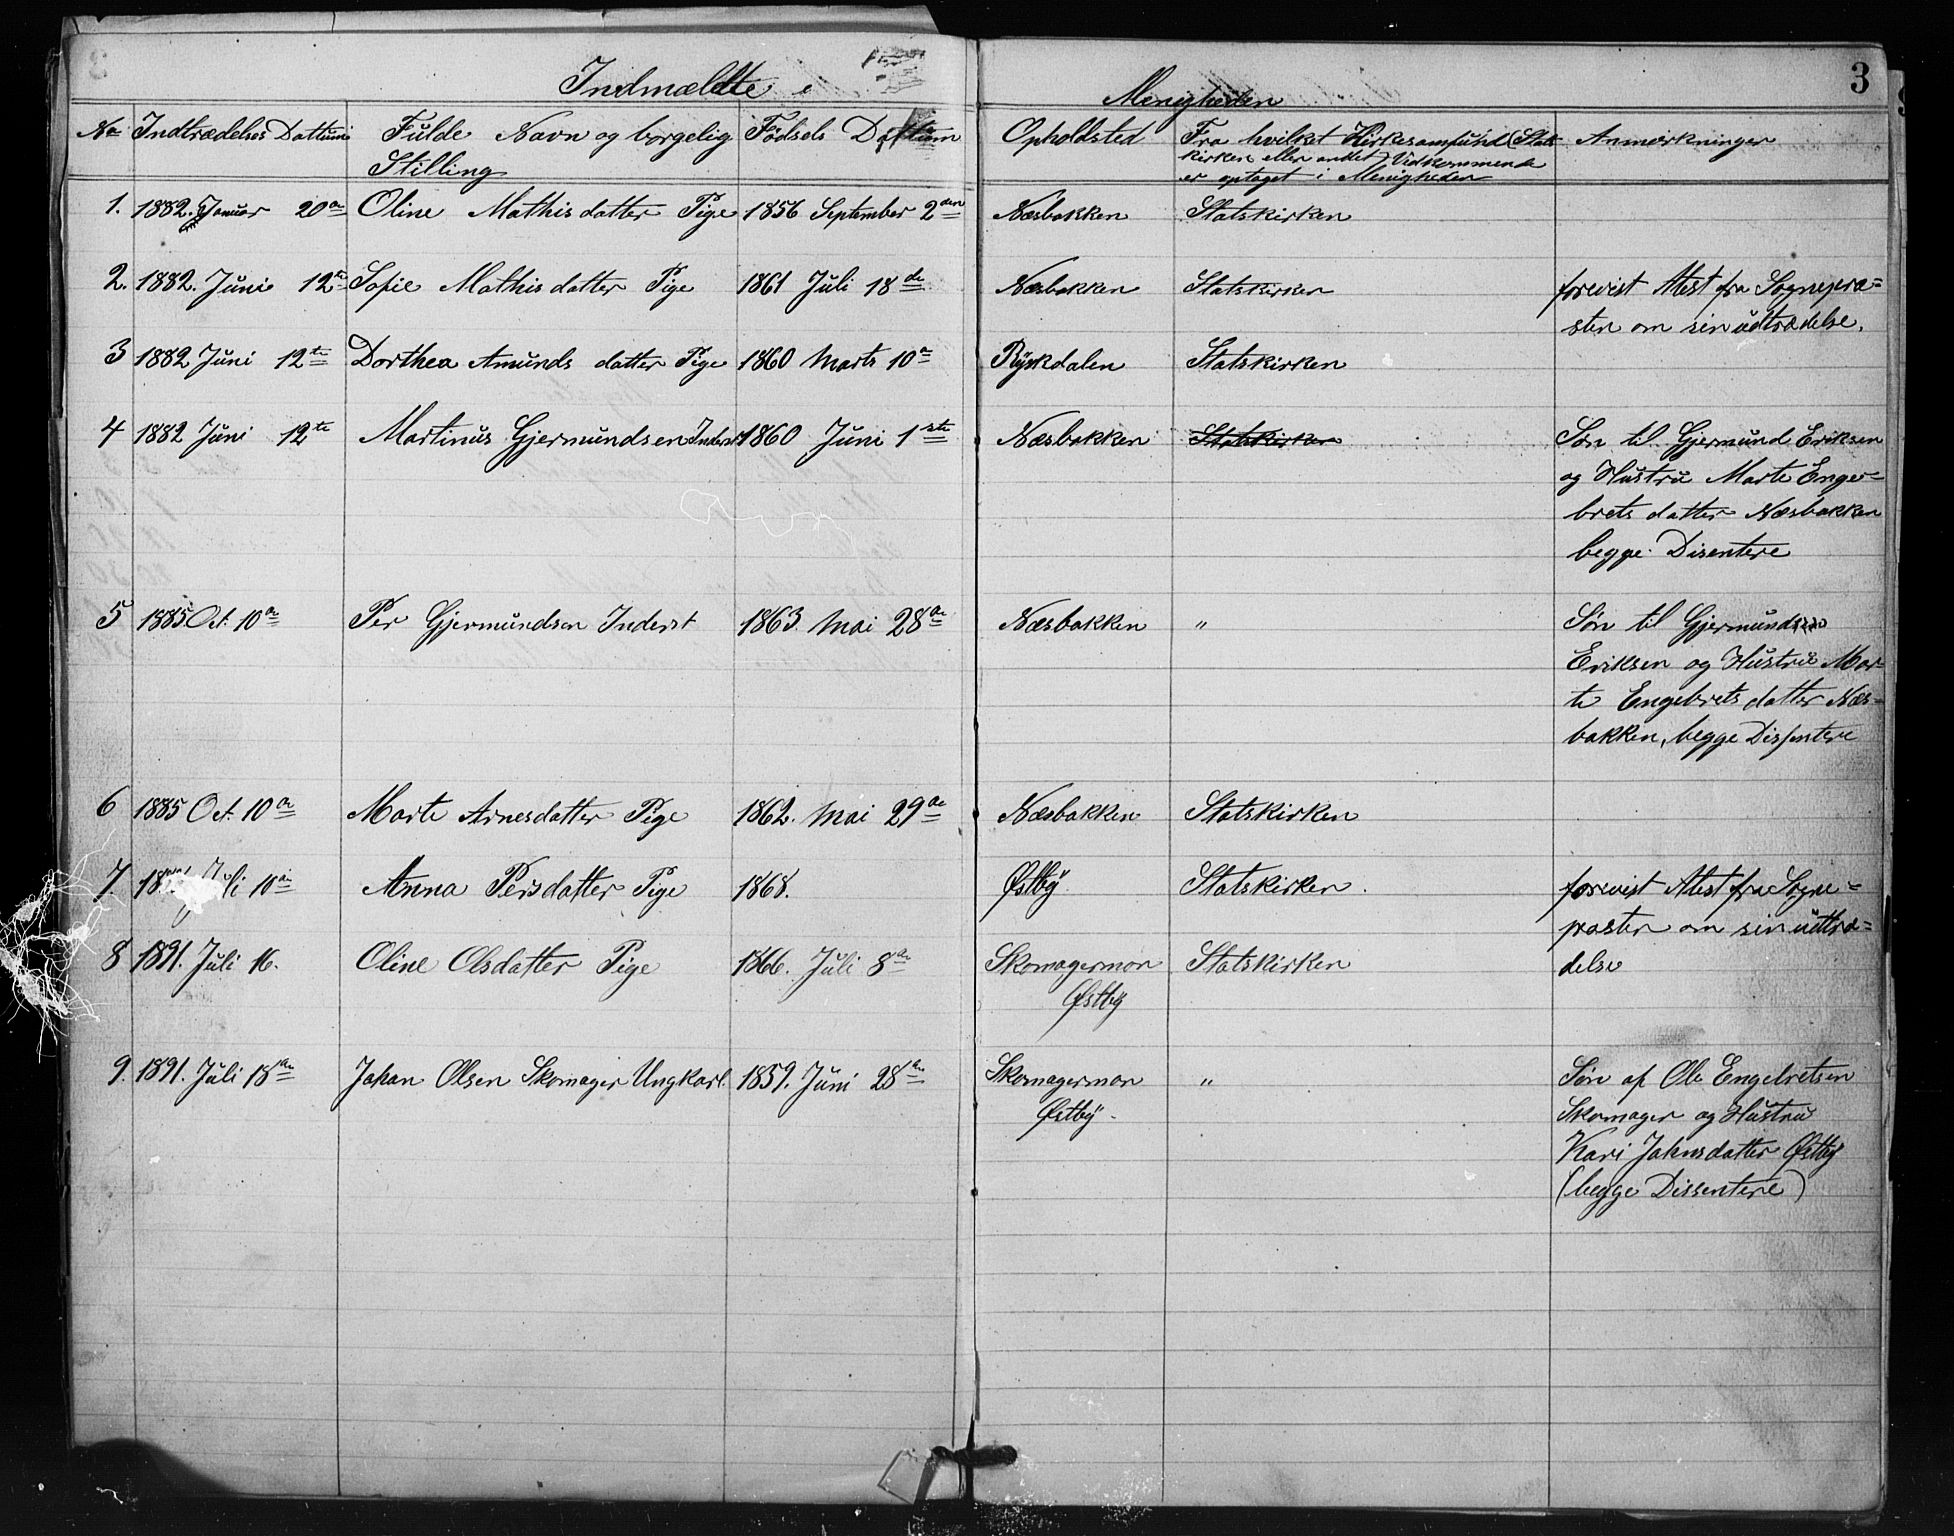 3
Indmældte i Menigheden
No Indtrædelses Dattum Fulde Navn og borgelig Stilling Fødsels Dattum Opholdsted Fra hvilket Kirkesamfund (Stats
kirken eller andet) Vidkommende
er optaget i Menigheden Anmerkninger
1. 1882. Januar 20de Oline Mathisdatter Pige 1856 September 2den Næsbakken Statskirken
2. 1882. Juni 12te Sofie Mathisdatter Pige 1861 Juli 18de Næsbakken Statskirken forevist Atest fra Sognepræ=
sten om sin udtrædelse.
3 1882 Juni 12te Dorthea Amunds datter Pige 1860 Marts 10de Ryskdalen Statskirken
4 1882 Juni 12te Martinus Gjermundsen Inderst 1860 Juni 1ste Næsbakken Statskirken Søn til Gjermund Eriksen
og Hustru Marte Enge=
brets datter Næsbakken
begge Disentere
5 1885 Oct. 10de Per Gjermundsen Inderst 1863 Mai 28de Næsbakken " Søn til Gjermund
Eriksen og Hustru Mar-
te Engebrets datter Næs=
bakken, begge Dissentere
6 1885 Oct. 10de Marte Arnesdatter Pige 1862. Mai 29de Næsbakken Statskirken
7. Juli 10de Anna Persdatter Pige 1868. Østby Statskirken. forevist Atest fra Sogne=
præsten om sin udtræ=
delse
8 1891. Juli 16. Oline Olsdatter Pige 1866. Juli 8de Skomagermon
Østby Statskirken
9. 1891. Juli 18de Johan Olsen Skomager Ungkarl. 1859. Juni 28de Skomagermon
Østby. " Søn af Ole Engebretsen
Skomager og Hustru
Kari Johnsdatter Østby
(begge Dissentere)